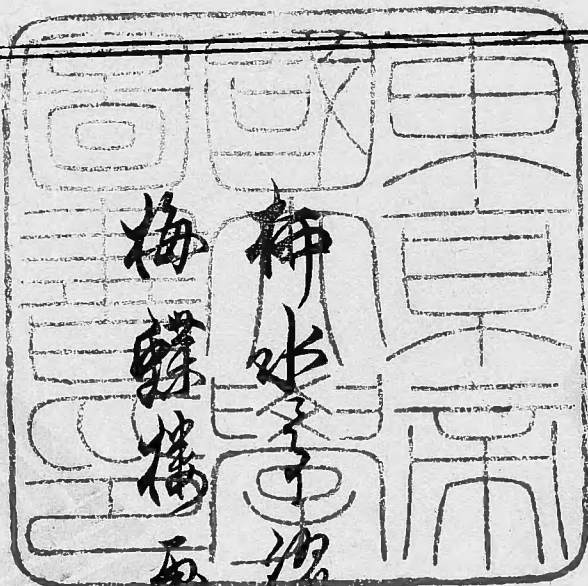 東京帝
國大學
圖書印
柳水亭
梅蝶樓